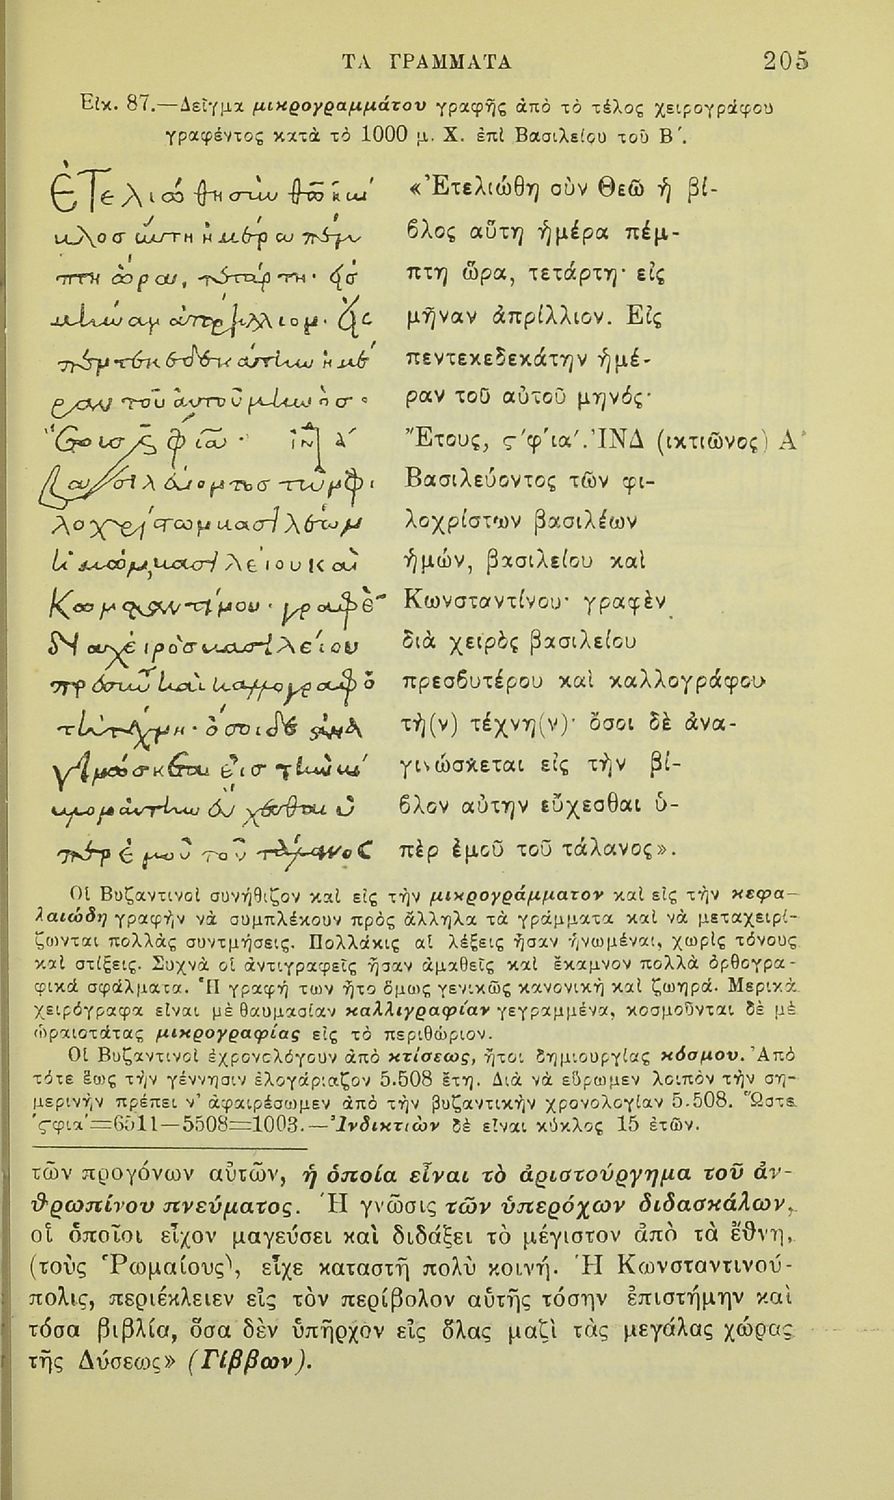 ΤΑ ΓΡΑΜΜΑΤΑ 205
Εἰκ. 87.—Δεῖγμα μικρογραμμάτου γραφῆς ἀπὸ τὸ τέλος χειρογράφου
γραφέντος κατὰ τὸ 1000 μ. Χ. ἐπὶ Βασιλείου τοῦ Β΄.
«Ἐτελιώθη σὺν Θεῶ ἡ βί-
βλος αὕτη ἡμέρα πέμ-
πτη ὥρα, τετάρτη· εἰς
μῆναν ἀπρίλλιον. Εἰς
πεντεκεδεκάτην ἡμέ-
ραν τοῦ αὐτοῦ μηνός·
Ἔτους, ϛ΄φ΄ια΄. ἸΝΔ (ικτιῶνος) Α΄
Βασιλεύοντος τῶν φι-
λοχρίστων βασιλέων
ἡμών, βασιλείου καὶ
Κωνσταντίνου· γραφὲν
διὰ χειρὸς βασιλείου
πρεσβυτέρου καὶ καλλογράφου
τὴ(ν) τέχνη(ν)· ὅσοι δὲ ἀνα-
γινώσκεται εἰς τὴν βί-
βλον αὐτην εὔχεσθαι ὑ-
πὲρ ἐμοῦ τοῦ τάλανος».
Οἱ Βυζαντινοὶ συνήθιζον καὶ εἰς τὴν μικρογράμματον καὶ εἰς τὴν κεφα-
λαιώδη γραφὴν νὰ συμπλέκουν πρὸς ἄλληλα τὰ γράμματα καὶ νὰ μεταχειρί-
ζωνται πολλὰς συντμήσεις. Πολλάκις αἱ λέξεις ἦσαν ἡνωμέναι, χωρὶς τόνους
καὶ στίξεις. Συχνὰ οἱ ἀντιγραφεῖς ἦσαν ἀμαθεῖς καὶ ἔκαμνον πολλὰ ὀρθογρα-
φικά σφάλματα. Ἡ γραφή των ἦτο ὅμως γενικῶς κανονικὴ καὶ ζωηρά. Μερικὰ
χειρόγραφα εἶναι μὲ θαυμασίαν καλλιγραφίαν γεγραμμένα, κοσμοῦνται δὲ μὲ
ὡραιοτάτας μικρογραφίας εἰς τὸ περιθώριον.
Οἱ Βυζαντινοὶ ἐχρονολόγουν ἀπὸ κτίσεως, ἤτοι δημιουργίας κόσμου. Ἀπὸ
τότε ἕως τὴν γέννησιν ἐλογάριαζον 5.508 ἔτη. Διὰ νὰ εὕρωμεν λοιπὸν τὴν ση-
μερινὴν πρέπει ν' ἀφαιρέσωμεν ἀπὸ τὴν βυζαντικὴν χρονολογίαν 5.508. Ὥστε
΄ϛφια΄=6511—5508=1003.—Ἰνδικτιὼν δὲ εἶναι κύκλος 15 ἐτῶν.
τῶν προγόνων αὐτῶν, ἡ ὁποία εἶναι τὸ ἀριστούργημα τοῦ ἀν-
θρωπίνου πνεύματος. Ἡ γνῶσις τῶν ὑπερόχων διδασκάλων,
οἱ ὁποῖοι εἶχον μαγεύσει καὶ διδάξει τὸ μέγιστον ἀπὸ τὰ ἔθνη,
(τοὺς Ῥωμαίους), εἶχε καταστῆ πολὺ κοινή. Ἡ Κωνσταντινού-
πολις, περιέκλειεν εἰς τὸν περίβολον αὑτῆς τόσην ἐπιστήμην καὶ
τόσα βιβλία, ὅσα δὲν ὑπῆρχον εἰς ὅλας μαζὶ τὰς μεγάλας χώρας
τῆς Δύσεως» (Γίββων).